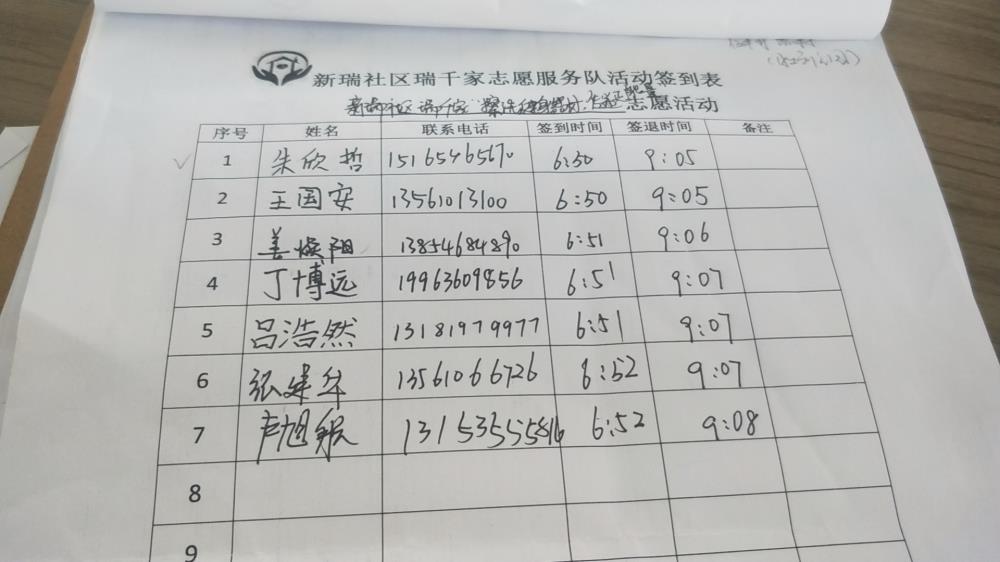 新瑞社区瑞千家志愿服务队活动签到表
新瑞社区 瑞千家 志愿活动
序号 姓名 联系电话 签到时间 签退时间 备注
1 朱欣哲 15165465670 6:30 9:05
2 王国安 13561013100 6:50 9:05
3 姜焕阳 13854684890 6:51 9:06
4 丁博远 19963609856 6:51 9:07
5 吕浩然 13181979977 6:51 9:07
6 张建华 13561066726 6:52 9:07
7 卢旭 13153555816 6:52 9:08
8
9